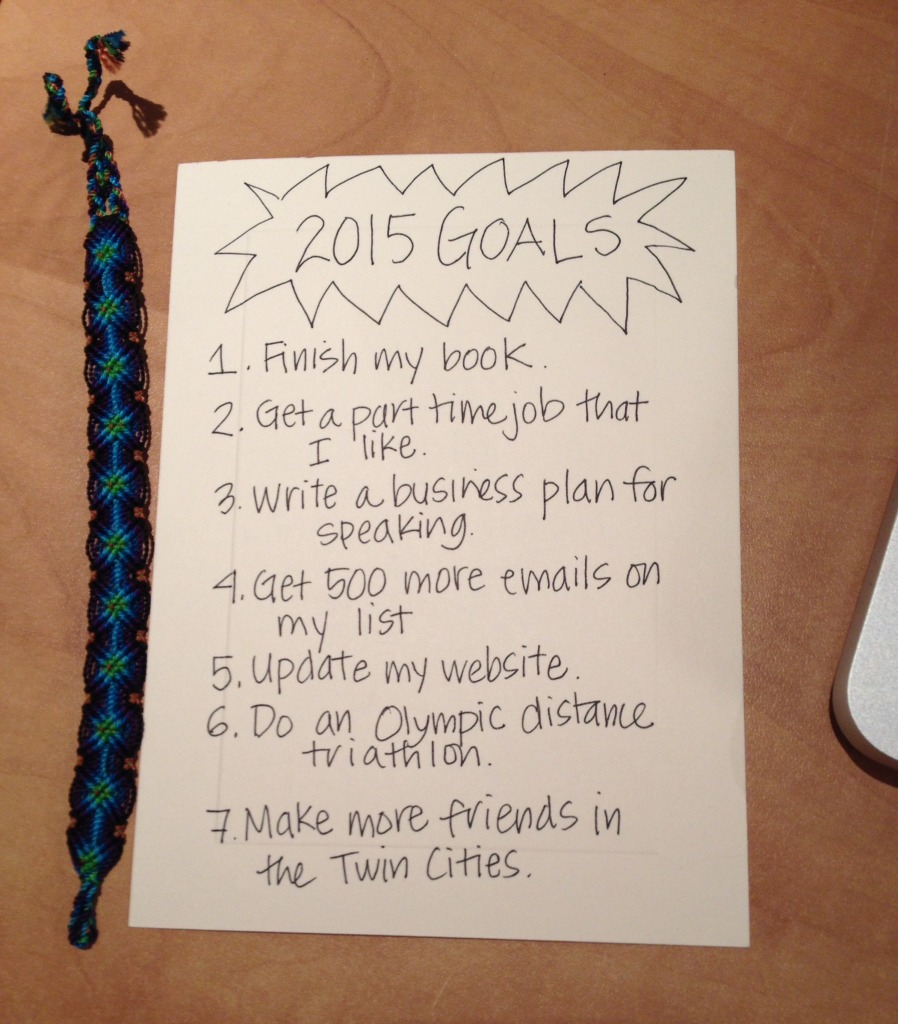 2015 GOALS
1. Finish my book.
2. Get a part time job that
I like.
3. Write a business plan for
speaking.
4. Get 500 more emails on
my list
5. Update my website.
6. Do an Olympic distance
triathlon.
7. Make more friends in
the Twin Cities.